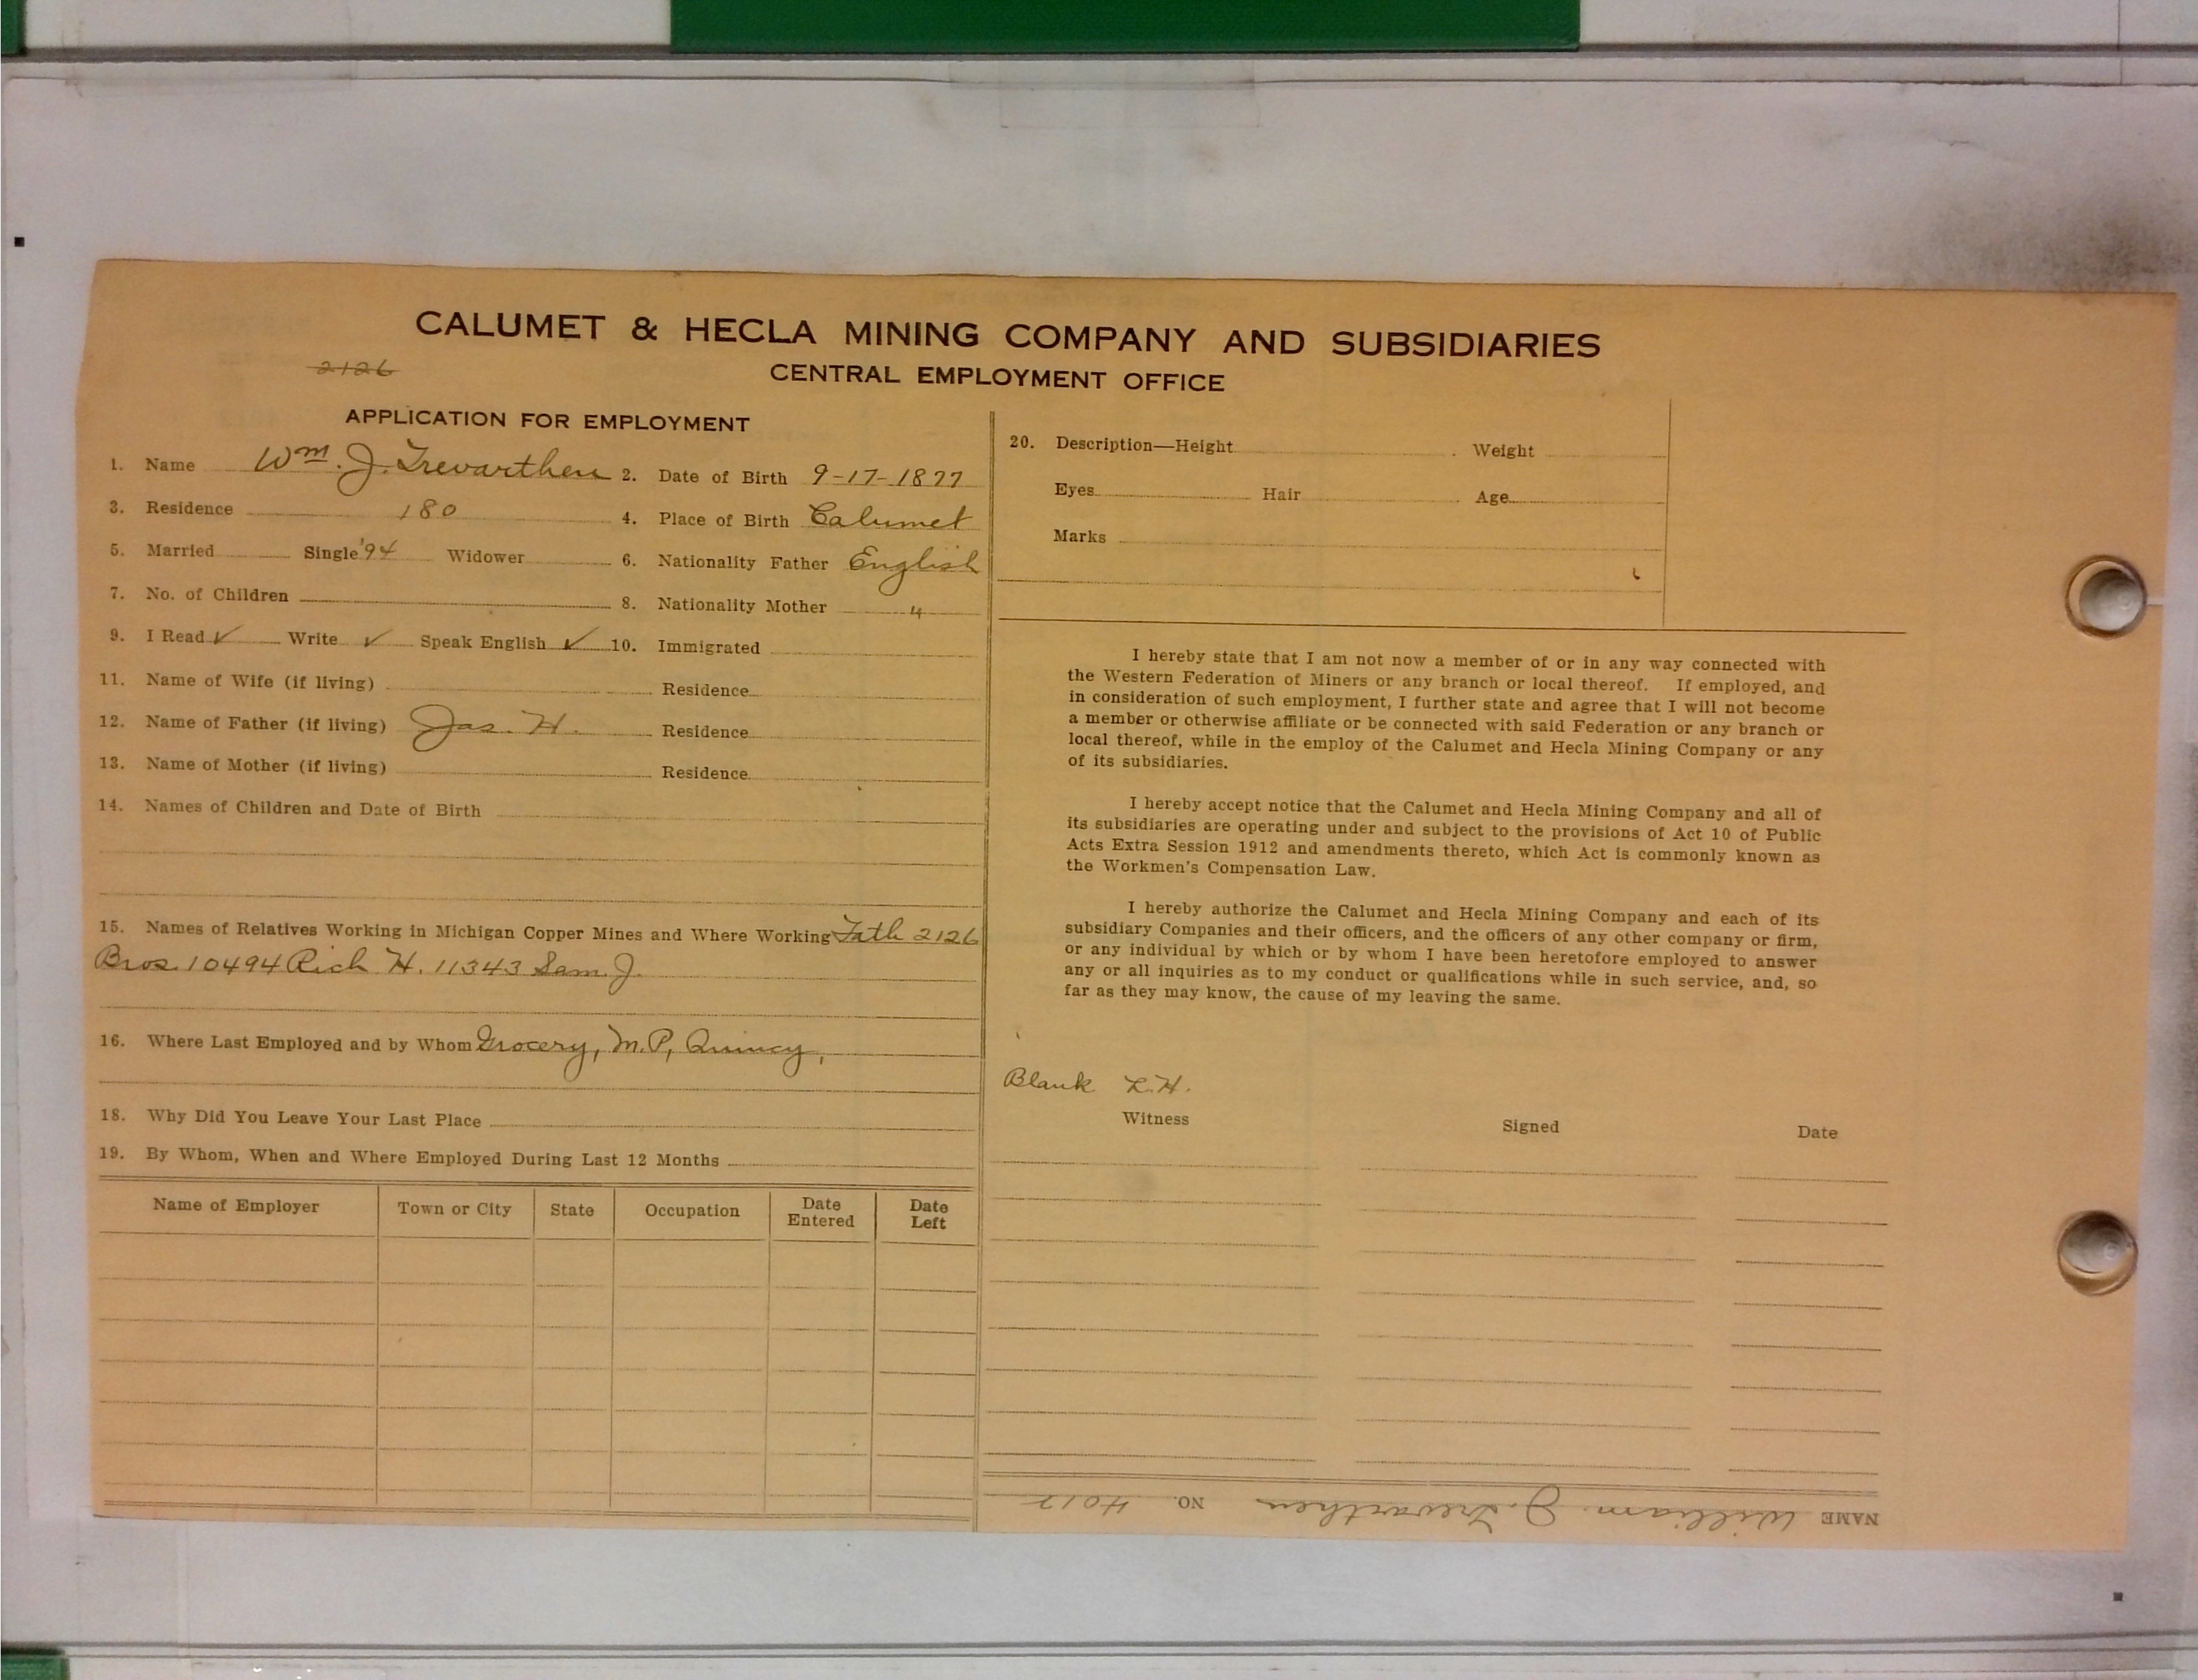 CALUMET & HECLA MINING COMPANY AND SUBSIDIARIES
2126
CENTRAL EMPLOYMENT OFFICE
APPLICATION FOR EMPLOYMENT
1. Name Wm. J. Trevarthen 2. Date of Birth 9-17-1877
3. Residence 180 4. Place of Birth Calumet
5. Married Single '94 Widower 6. Nationality Father English
7. No. of Children 8. Nationality Mother "
9. I Read ✓ Write ✓ Speak English ✓ 10. Immigrated
11. Name of Wife (if living) Residence
12. Name of Father (if living) Jas. H. Residence
13. Name of Mother (if living) Residence
14. Names of Children and Date of Birth
15. Names of Relatives Working in Michigan Copper Mines and Where Working Fath 2126
Bros. 10494 Rich H. 11343 Sam. J.
16. Where Last Employed and by Whom Grocery, M.P, Quincy,
18. Why Did You Leave Your Last Place
19. By Whom, When and Where Employed During Last 12 Months
Name of Employer Town or City State Occupation Date Entered Date Left
20. Description—Height Weight
Eyes Hair Age
Marks
I hereby state that I am not now a member of or in any way connected with
the Western Federation of Miners or any branch or local thereof. If employed, and
in consideration of such employment, I further state and agree that I will not become
a member or otherwise affiliate or be connected with said Federation or any branch or
local thereof, while in the employ of the Calumet and Hecla Mining Company or any
of its subsidiaries.
I hereby accept notice that the Calumet and Hecla Mining Company and all of
its subsidiaries are operating under and subject to the provisions of Act 10 of Public
Acts Extra Session 1912 and amendments thereto, which Act is commonly known as
the Workmen's Compensation Law.
I hereby authorize the Calumet and Hecla Mining Company and each of its
subsidiary Companies and their officers, and the officers of any other company or firm,
or any individual by which or by whom I have been heretofore employed to answer
any or all inquiries as to my conduct or qualifications while in such service, and, so
far as they may know, the cause of my leaving the same.
Blank L.H.
Witness Signed Date
NAME William J. Trevarthen NO. 4017